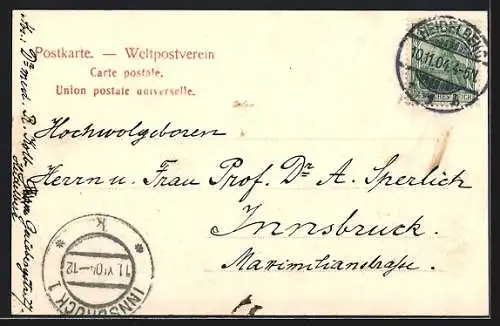 Postkarte. — Weltpostverein
Carte postale.
Union postale universelle.
HEIDELBERG
10.11.04.4-5N.
Hochwolgeboren
Herrn u. Frau Prof. Dr A. Sperlich
Innsbruck.
Maximilianstraße.
INNSBRUCK 1
11.XI.04-12
K
Dr med. R.